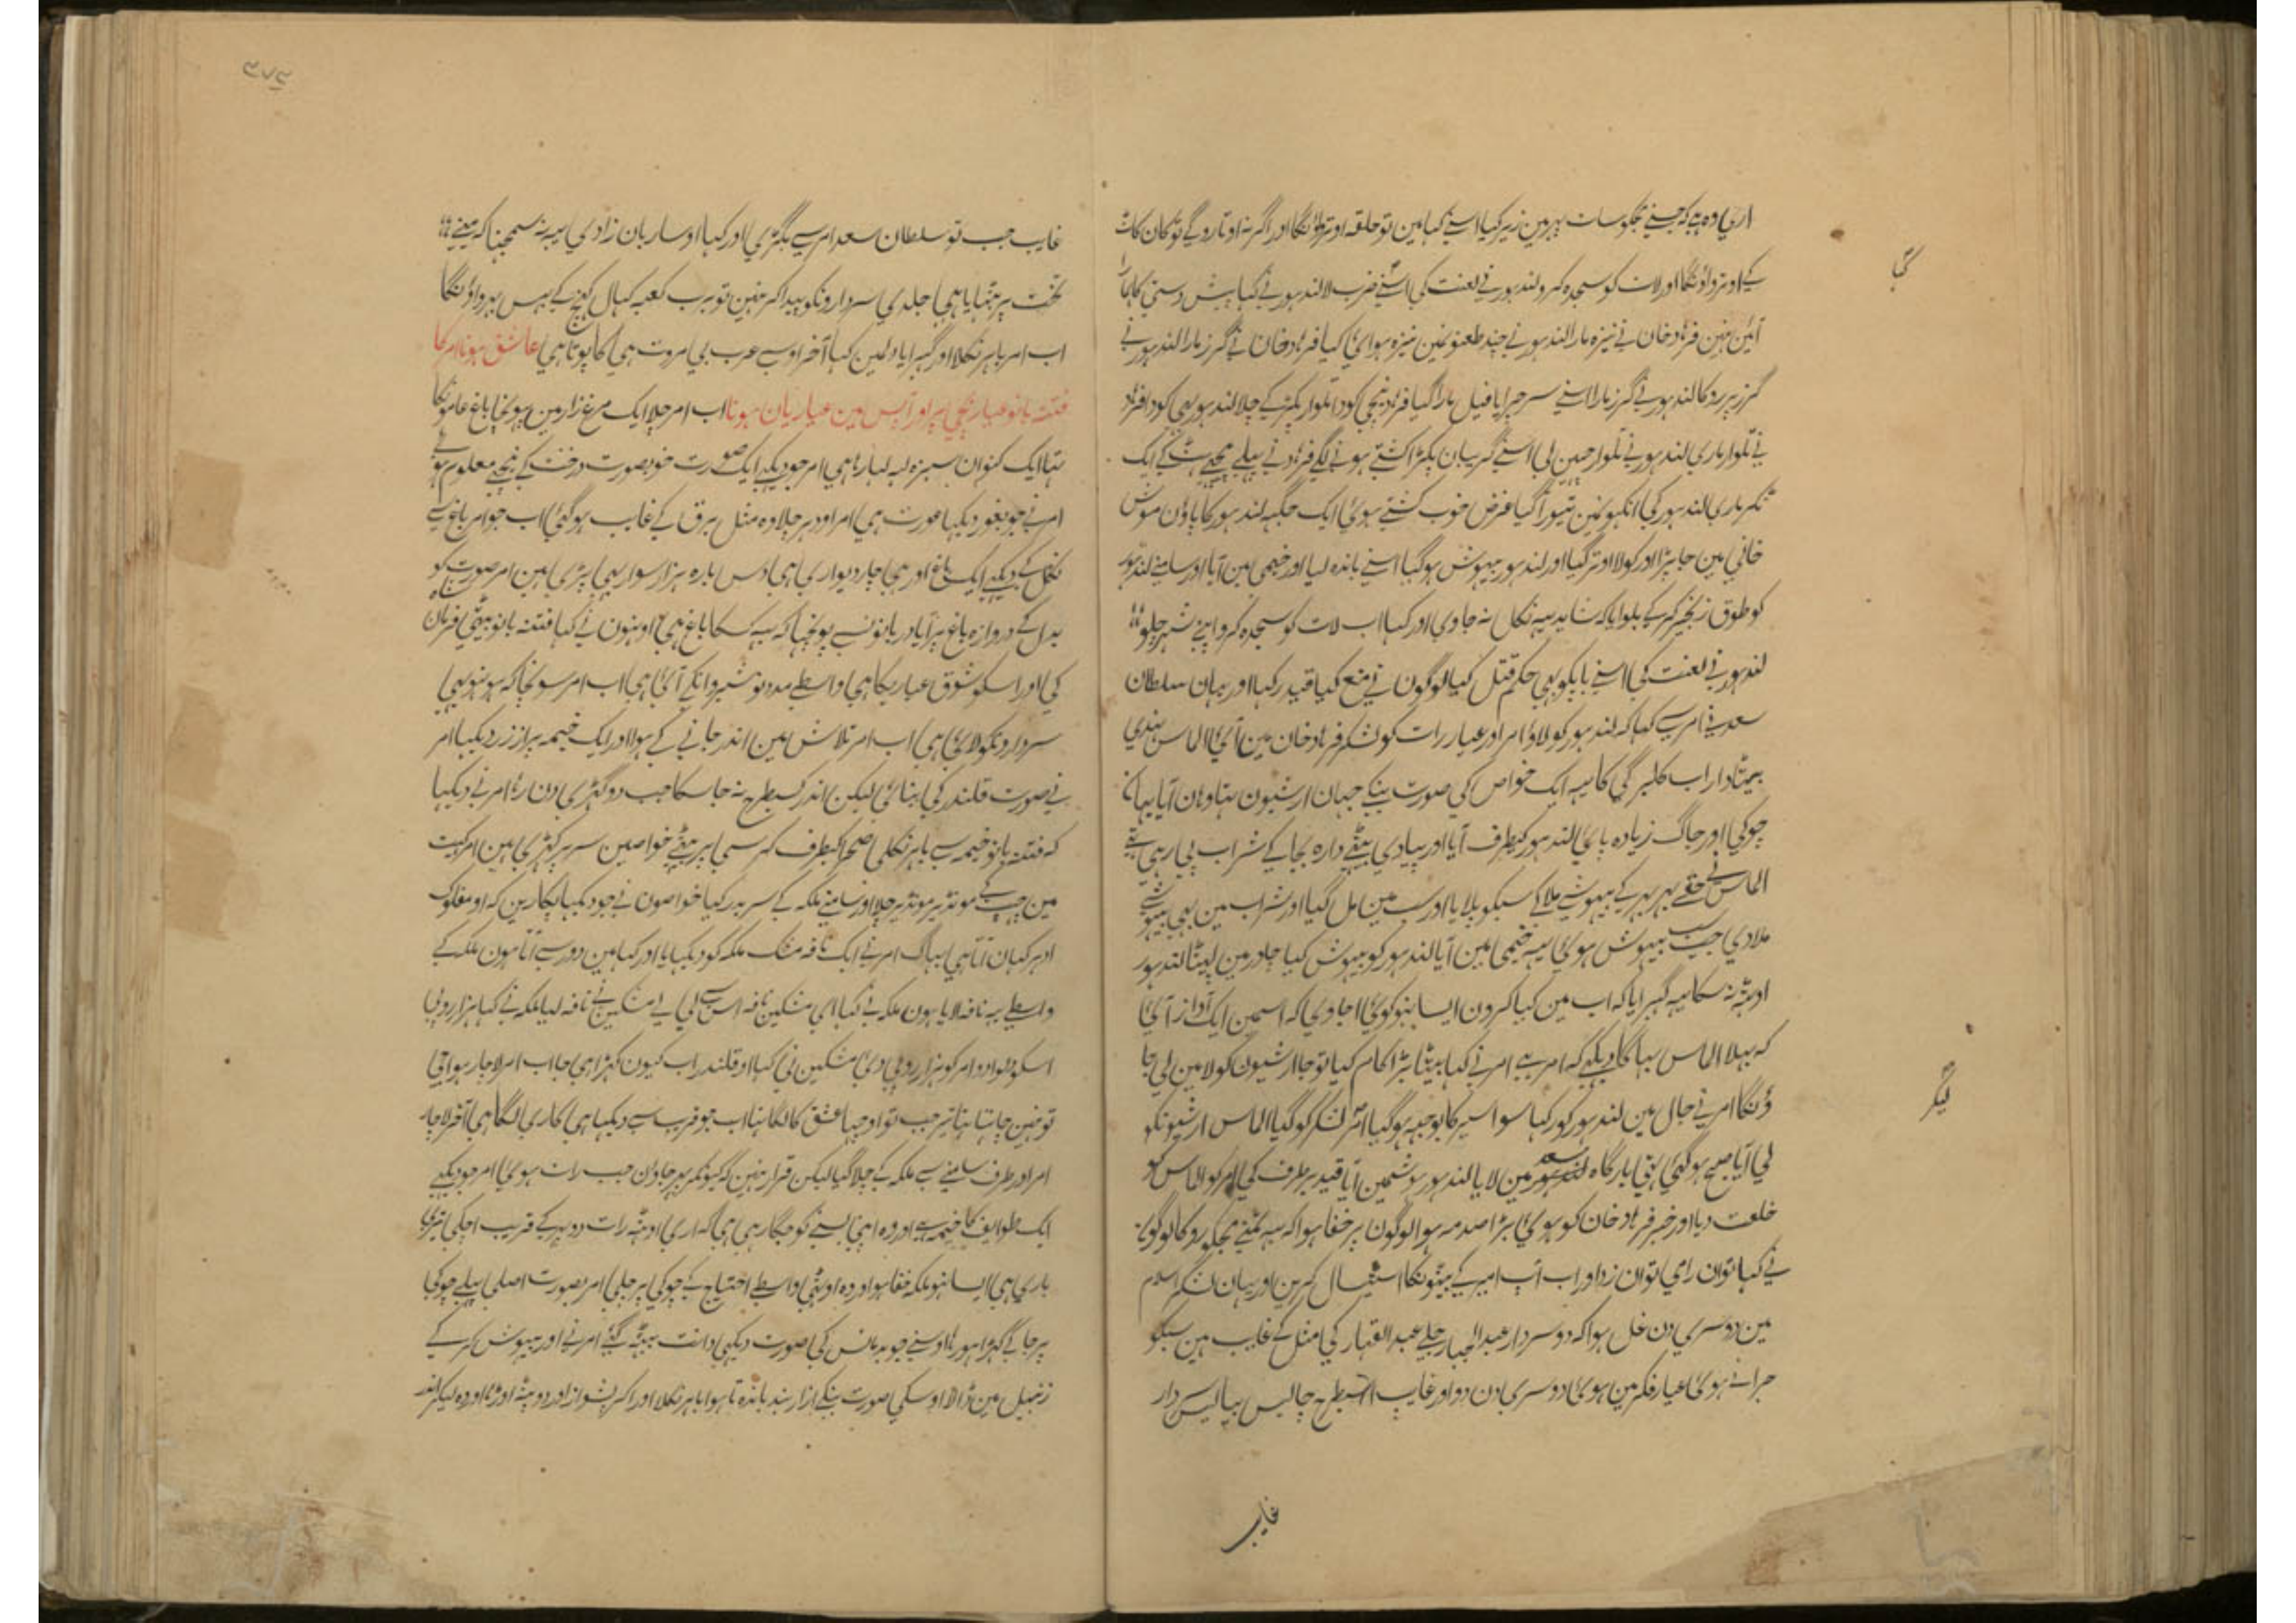 اری وہ ہے کہ جسنے تجکو سات پہر مین زیر کیا اسنے کہا مین تو حلقہ اوترواونگا اور اگر نہ اوتارو گے تو کان کاٹ
کے اوترواونگا اور لات کو سجدہ کرو لندہور نے لعنت کی اسنے ضرب لا لندہور نے کہا پیش دستی کا ہمارا
آئین نہین فرہاد خان نے نیزہ مارا لندہور نے چند طعنونمین نیزہ ہوائی کیا فرہاد خان نے گرز مارا لندہور نے
گرز پر روکا لندہور نے گرز مارا اسنے سر چرایا فیل مارا گیا فرہاد نیچی کودا تلوار پکڑ کے چلا لندہور بھی کودا فرہاد
نے تلوار ماری لندہور نے تلوار چھین لی اسنے گریبان پکڑا کشتی ہونے لگے فرہاد نے پیلے پیچھے ہٹ کے ایک
ٹکر ماری لندہور کی انکہونمین تیورا گیا غرض خوب کشتے ہوئی ایک جگہہ لندہور کا پاون موش
خانی مین جا پڑا اور کولا اوتر گیا اور لندہور بیہوش ہو گیا اسنے باندہ لیا اور خیمی مین آیا اور سامنے لندہور
کو طوق زنجیر کر کے بلوایا کہ شاید یہہ نکل نہ جاوی اور کہا اب لات کو سجدہ کرو اپنے شہر چلو
لندہور نے لعنت کی اسنے باپکو بھی حکم قتل کیا لوگون نے منع کیا قید رکہا اور یہان سلطان
سعد نے امر سے کہا کہ لندہور کو لاؤ امر اور عیار رات کو لشکر فرہاد خان مین آئی الماس ہندی
بیٹا داراب کلبر گی کا یہہ ایک خواص کی صورت بنکے جہان ارشیون تہا وہان آیا یہان
چوکی اور جاگ زیادہ پائی لندہور کیطرف آیا اور پیادی بیٹھے دارہ بجا کے شراب پی رہی تھے
الماس نے حقے بہر بہر کے بیہوشے ملا کے سبکو پلایا اور سب مین مل گیا اور شراب مین بھی بیہوشے
ملا دی جب سب بیہوش ہوئی یہہ خیمی مین آیا لندہور کو بیہوش کیا چادر مین لپیٹا لندہور
اوٹھ نہ سکا یہہ گہبرایا کہ اب مین کیا کرون ایسا نہو کوئی آ جاوی کہ اسمین ایک آواز آئی
کہ بہلا الماس بہاگا دیکہے کہ امر ہے امر نے کہا بیٹا بڑا کام کیا تو جا ارشیون کو لا مین لی جا
ؤنگا امر نے جال مین لندہور کو رکہا سوا سیر کا بوجہہ ہو گیا امر لشکر کو گیا الماس ارشیونکو
لی آیا صبح ہو گئی تھی بارگاہ سعد مین لایا لندہور ہوشمین آیا قید برطرف کی امر کو الماس کو
خلعت دیا اور خبر فرہاد خان کو ہوئی بڑا صدمہ ہوا لوگون پر خفا ہوا کہ یہہ تمنے مجکو روکا لوگون
نے کہا توان رامی توان زد اور اب آپ امیر کے بیٹونکا استیصال کرین اور یہان لشکر اسلام
مین دوسری دن غل ہوا کہ دو سردار عبد الجبار چلے عبد القہار کی مثل کے غایب ہین سبکو
حیرانے ہوئی عیار فکر مین ہوئی دوسری دن دو اور غایب اسطرح چالیس بیالیس سردار
غایب
کی
لیکر
۳۷۴
غایب جب تو سلطان سعد امر سے بگڑی اور کہا او ساربان زادی یہہ نہ سمجہنا کہ مینے
تخت پر بٹہایا ہی جلدی سردارونکو پیدا کر نہین تو برب کعبہ کہال کہینچ کے بہس بہرواؤنگا
اب امر باہر نکلا اور گہبرایا دلمین کہا آخر اوسے عرب بی مروت ہی کا پوتا ہی عاشق ہونا امر کا
فتنہ بانو عیار بچی پر اور آپس مین عیاریان ہونا اب امر چلا ایک مرغزار مین پہونچا باغ عامونکا
تہا ایک کنوان سبزہ لہ لہا رہا ہی امر جو دیکہے ایک صورت خوبصورت درخت کے نیچے معلوم ہوئے
امر نے جو بغور دیکہا عورت ہی امر اودہر چلا وہ مثل برق کے غایب ہو گئی اب جو امر باغ سے
نکل کے دیکہے ایک باغ اور ہی چار دیواری ہی دس بارہ ہزار سوار بھی پڑی ہین امر صورت کو
بدل کے دروازہ باغ پر آیا دربانونسے پوچہا کہ یہہ کسکا باغ ہی اونہون نے کہا فتنہ بانو بیٹی فرمان شاہ
کی اور اسکو شوق عیاریکا ہی واسطے مدد نوشیروانکے آئی ہی اب امر سونچا کہ ہو نہو یہی
سردارونکو لائی ہی اب امر تلاش مین اندر جانے کے ہوا اور ایک خیمہ پر از زر دیکہا امر
نے صورت قلندر کی بنائی لیکن اندر کسیطرح نہ جا سکا جب دو گہڑی دن رہا امر نے دیکہا
کہ فتنہ بانو خیمہ سے باہر نکلی صحرا کیطرف کرسی پر بیٹھے خواصین سر پر کہڑی ہین امر کہیت
مین چہپ کے مونڈیر مونڈیر چلا اور سامنے ملکہ کے سر بدر کیا خواصون نے جو دیکہا پکارین کہ او مفلوک
ادہر کہان آتا ہی بہاگ امر نے ایک نافہ مشک ملکہ کو دیکہایا اور کہا مین دور سے آتا ہون ملکہ کے
واسطے یہہ نافہ لایا ہون ملکہ نے کہا ای مشکین نافہ اس سے لی لے مشکین نے نافہ لیا ملکہ نے کہا ہزار روپی
اسکو دلوا دو امر کو ہزار روپی دی مشکین نی کہا او قلندر اب کیون کہڑا ہی جا اب امر لاچار ہوا جی
تو نہین چاہتا تہا تیر جب تو اوچہا عشق کا لگا تہا اب جو قریب سے دیکہا ہی کاری لگا ہی آخر لاچار
امر اور طرف سامنے سے ملکہ کے چلا گیا لیکن قرار نہین کہ کیونکر پہر جاون جب رات ہوئی امر جو دیکہے
ایک طوایف کا خیمہ ہے اور وہ اپنی بسنے کو جگا رہی ہی کہ اری اوٹھ رات دو پہر کے قریب آچکی تیری
باری ہی ایسا نہو ملکہ خفا ہو اور وہ اوٹھی واسطے احتیاج کے چوکی پر چلی امر بصورت اصلی پہلے چوکی
پر جا کے کہڑا ہو رہا اوسنے جو بد مانس کی صورت دیکہی دانت بیٹھ گئے امر نے اور بیہوش کر کے
زنبیل مین ڈالا اوسکی صورت بنکے ازار بند باندہتا ہوا باہر نکلا اور اکر پشواز اور دوپٹہ اوڑہا اور وہ لیکر اندر